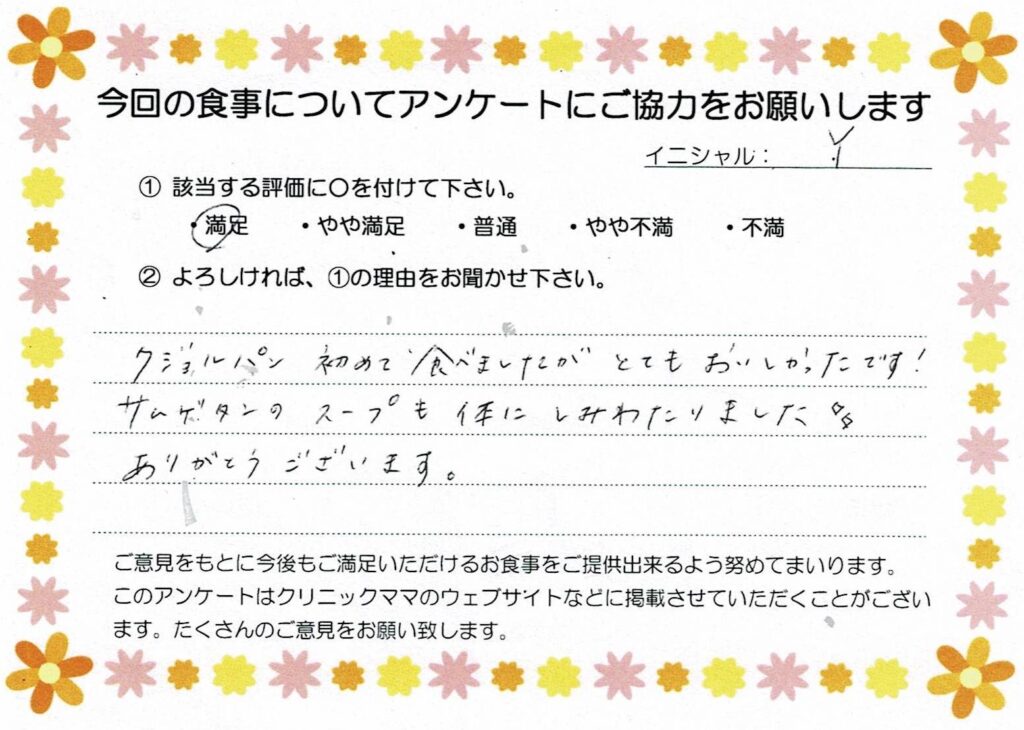 今回の食事についてアンケートにご協力をお願いします
イニシャル： Y
① 該当する評価に〇を付けて下さい。
・満足 ・やや満足 ・普通 ・やや不満 ・不満
② よろしければ、①の理由をお聞かせ下さい。
クジョルパン 初めて食べましたが とても おいしかったです!
サムゲタンの スープも 体に しみわたりました
ありがとうございます。
ご意見をもとに今後もご満足いただけるお食事をご提供出来るよう努めてまいります。
このアンケートはクリニックママのウェブサイトなどに掲載させていただくことがござい
ます。たくさんのご意見をお願い致します。